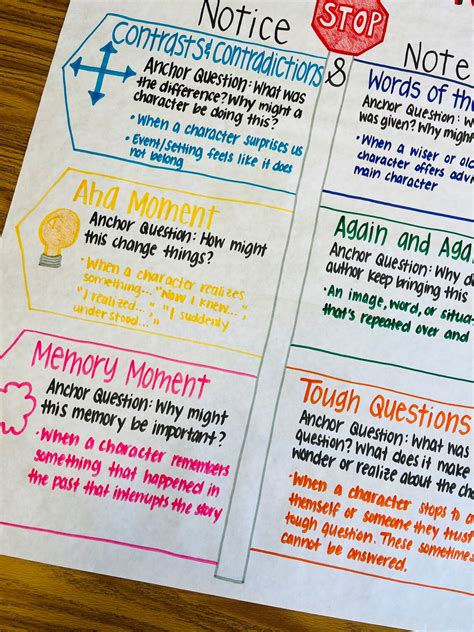 Notice
STOP
&
Note
Contrasts & Contradictions
Anchor Question: What was
the difference? Why might a
character be doing this?
• When a character surprises us
• Event/Setting feels like it does
not belong
Aha Moment
Anchor Question: How might
this change things?
• When a character realizes
something... "Now I knew...",
"I realized...", "I suddenly
understood..."
Memory Moment
Anchor Question: Why might
this memory be important?
• When a character remembers
something that happened in
the past that interrupts the story
Words of the
Anchor Question: W
was given? Why migh
• When a wiser or
character offers adv
main character
Again and Aga
Anchor Question: Why
author keep bringing this
• An image, word, or situa
that's repeated over and
Tough Questions
Anchor Question: What was
question? What does it make
wonder or realize about the cha
• When a character stops to
themself or someone they trust
tough question. These sometimes
cannot be answered.